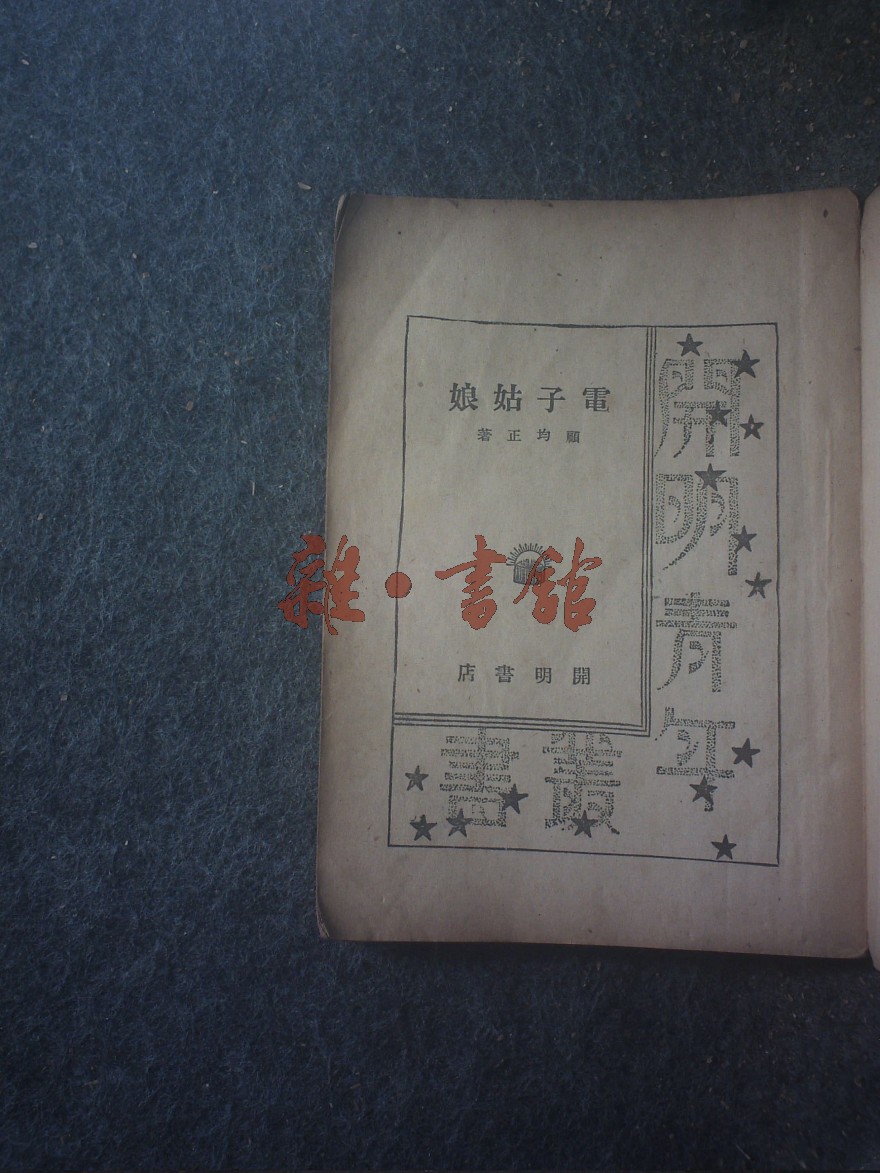 電子姑娘
顧均正著
開明書店
開明青年
叢書
雜·書館